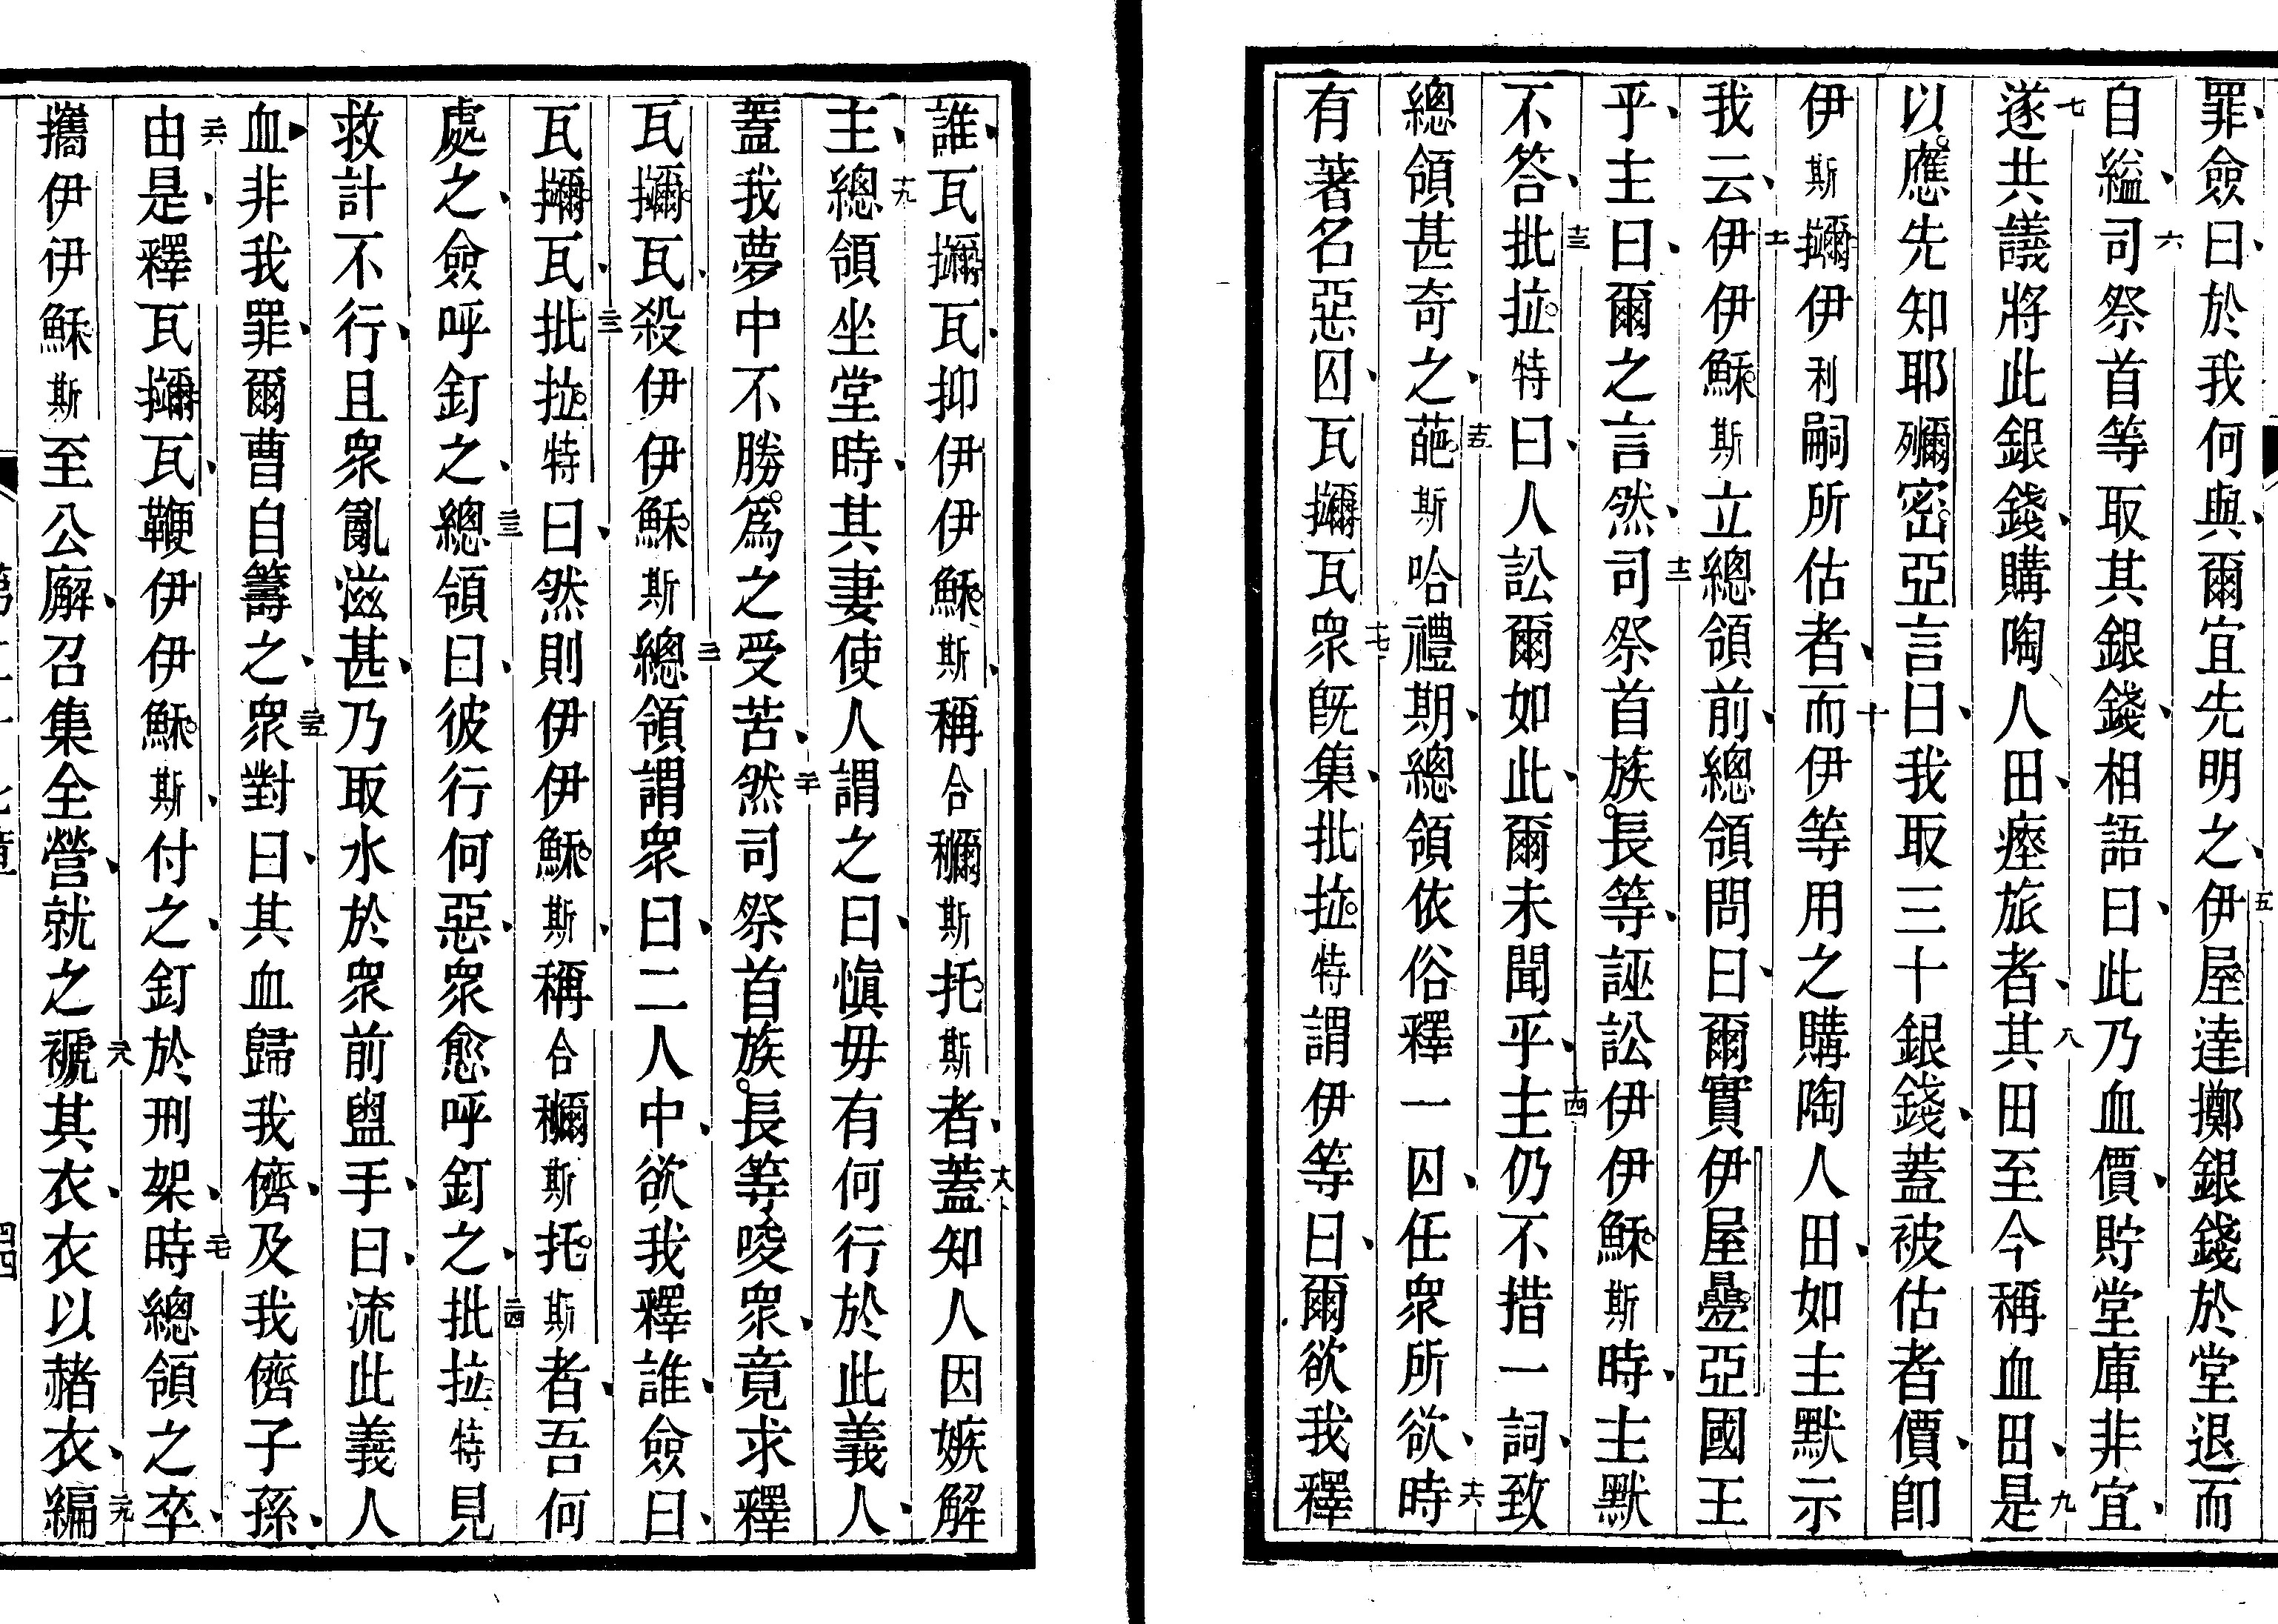 罪、僉曰、於我何與、爾宜先明之、五伊屋達擲銀錢於堂退而
自縊、六司祭首等取其銀錢、相語曰、此乃血價、貯堂庫非宜、
七遂共議將此銀錢、購陶人田、瘞旅者、八其田至今稱血田、九是
以應先知耶殦密亞言曰、我取三十銀錢、蓋被估者價、即
伊斯擟伊利嗣所估者、十而伊等用之購陶人田、如主默示
我云、十一伊伊穌斯立總領前、總領問曰、爾實伊屋疊亞國王
乎、主曰、爾之言然、十二司祭首族長等、誣訟伊伊穌斯時、主默
不答、十三批拉特曰、人訟爾如此、爾未聞乎、十四主仍不措一詞、致
總領甚奇之、十五葩斯哈禮期、總領依俗釋一囚、任衆所欲、十六時
有著名惡囚、瓦擟瓦十七衆既集、批拉特謂伊等曰、爾欲我釋
誰、瓦擟瓦、抑伊伊穌斯、稱合穪斯托斯者、十八蓋知人因嫉解
主、十九總領坐堂時、其妻使人謂之曰、愼毋有何行於此義人、
蓋我夢中不勝爲之受苦、二十然司祭首族長等唆衆、竟求釋
瓦擟瓦、殺伊伊穌斯二一總領謂衆曰、二人中、欲我釋誰、僉曰、
瓦擟瓦、二二批拉特曰、然則伊伊穌斯、稱合穪斯托斯者、吾何
處之、僉呼釘之、二三總領曰、彼行何惡、衆愈呼釘之、二四批拉特見
救計不行、且衆亂滋甚、乃取水於衆前盥手、曰、流此義人
血非我罪、爾曹自籌之、二五衆對曰、其血歸我儕、及我儕子孫、
二六由是、釋瓦擟瓦、鞭伊伊穌斯、付之、釘於刑架、二七時總領之卒、
攜伊伊穌斯至公廨、召集全營、就之二八褫其衣、衣以赭衣、二九編